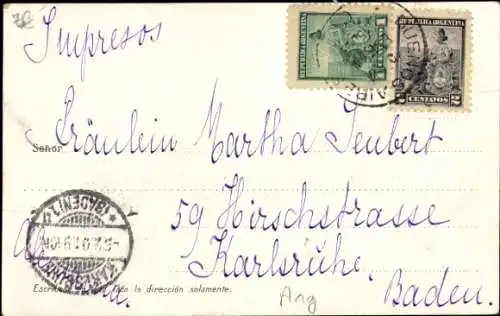 Impresos
REPUBLICA ARGENTINA
1 CENTAVO 1
REPUBLICA ARGENTINA
2 CENTAVOS 2
BUENOS AIRES
Señor
Fräulein Martha Seubert
59 Hirschstrasse
Karlsruhe
Baden.
(BADEN)
la dirección solamente.
Arg